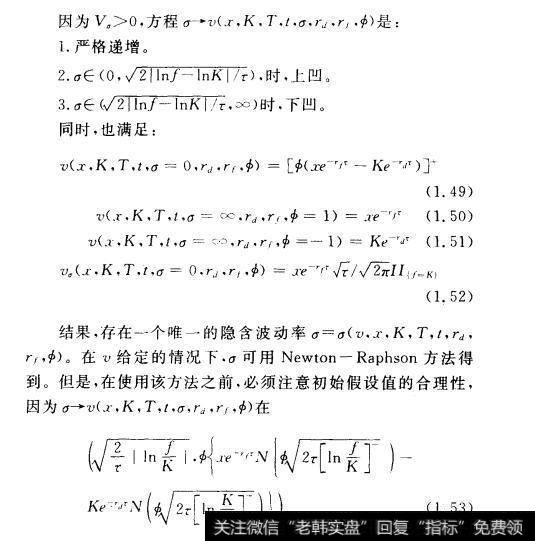 因为 Vσ>0,方程 σ→v(x,K,T,t,σ,r_d,r_f,ϕ)是:
1. 严格递增。
2. σ∈(0,√2|lnf−lnK|/τ),时,上凹。
3. σ∈(√2|lnf−lnK|/τ,∞)时,下凹。
同时,也满足:
v(x,K,T,t,σ = 0,r_d,r_f,ϕ) = [ϕ(xe^{−r_fτ} − Ke^{−r_dτ})]^+
(1.49)
v(x,K,T,t,σ = ∞,r_d,r_f,ϕ = 1) = xe^{−r_fτ} (1.50)
v(x,K,T,t,σ = ∞,r_d,r_f,ϕ =−1) = Ke^{−r_dτ} (1.51)
v_σ(x,K,T,t,σ = 0,r_d,r_f,ϕ) = xe^{−r_fτ}√τ/√2πII_{f=K}
(1.52)
结果,存在一个唯一的隐含波动率 σ=σ(v,x,K,T,t,r_d,
r_f,ϕ)。在 v 给定的情况下,σ 可用 Newton−Raphson 方法得
到。但是,在使用该方法之前,必须注意初始假设值的合理性,
因为 σ→v(x,K,T,t,σ,r_d,r_f,ϕ)在
(√(2/τ | ln f/K |,ϕ{xe^{−r_fτ}N{ϕ√(2τ[ln f/K]^−)−
Ke^{−r_dτ}N(ϕ√(2τ[ln K/
(1.53)
关注微信"老韩实盘"回复"指标"免费领